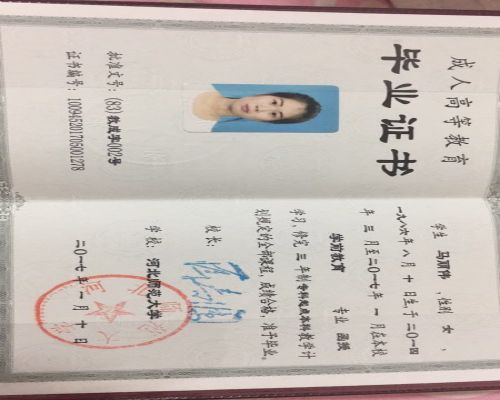 成人高等教育
毕业证书
批准文号：(83)教成字002号
证书编号：100945201705001278
学生 ，性别 女 ，
一九八六年八月十日生于二〇一四
年 三 月至二〇一七年 一 月在本校
学前教育 专业 函授
学习，修完 三 年制专科起点本科教学计
划规定的全部课程，成绩合格，准予毕业。
校长：
学校：河北师范大学
二〇一七年一月十日